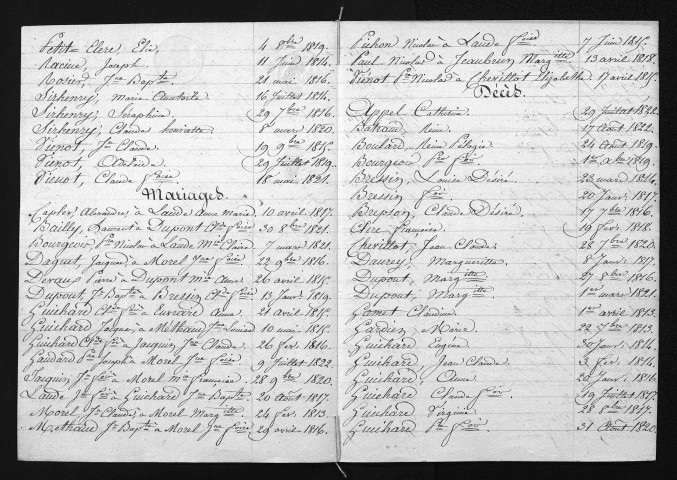 Petit-Clerc Elie 4 8bre 1819.
Racine, Joseph 11 Juin 1814.
Rosier, Jne Bapte 21 mai 1816.
Sirhenry, Marie Anatoile 16 Juillet 1814.
Sirhenry, Séraphine 29 7bre 1816.
Sirhenry, Claude 8 mars 1820.
Vienot, Jn Claude 19 9bre 1815.
Vienot, Adélaïde 29 Juillet 1819.
Vienot, Claude Fçois 18 mai 1821.
Mariages.
Alexandre à Laude Anne Marie 10 avril 1817.
Bailly, Laurent à Dupont Cde Fçoise 30 8bre 1821.
Bourgeois, Pre Nicolas à Laude Mie Claire 7 mars 1821.
Daguet, Jacques à Morel Jne Fçoise 22 9bre 1816.
Devaux Pierre à Dupont Mie Anne 26 avril 1815.
Dupont, Jn Bapte à Bressin Cde Fçoise 13 Janv. 1819.
Guichard Cde Fçois à Anne 21 avril 1815.
Guichard Jaques à Methaud Jne Louise 10 mai 1815.
Guichard Cde Fçois à Jauguin Jne Claude 26 fév. 1816.
Gaudard Pre Joseph à Morel Jne Fçoise 9 Juillet 1822.
Jauguin, Jn Fçois à Morel Mie Françoise 28 9bre 1820.
Laude Jn Fçois à Guichard Jne Bapte 20 août 1817.
Morel, Jn Claude à Morel Margitte 24 fév. 1813.
Methaud Jn Bapte à Morel Jne Fçoise 29 avril 1816.
Pichon Nicolas à Laude Fçoise 7 Juin 1815.
Paul Nicolas à Jeanbrun Margitte 13 avril 1818.
Vienot Pre Nicolas à Chevillot Elizabette 17 avril 1815.
Décès.
Appel Catherine 29 Juillet 1822.
Reine 17 Août 1822.
Boulard, Reine Pélagie 24 Août 1819.
Bourgeois Pre Fçois 1er Xbre 1819.
Bressin, Louise Désiré 23 mars 1814.
Bressin Fçois 20 Janv. 1817.
Brepson, Claude Désiré 17 7bre 1816.
Clerc Françoise 19 fév. 1818.
Chevillot, Jean Claude 28 7bre 1820.
Daurey Marguerite 8 Janv. 1817.
Dupont, Margitte 27 9bre 1816.
Dupont, Margitte 1er mars 1821.
Gamet Claudine 1er avril 1813.
Gardien, Marie 22 7bre 1813.
Guichard Eugène 30 Janv. 1814.
Guichard, Jean Claude 3 fév. 1814.
Guichard, Anne 20 Janv. 1816.
Guichard Claude Fçois 19 Juillet 1817.
Guichard Virginie 28 8bre 1817.
Guichard Pre Fçois 31 Août 1820